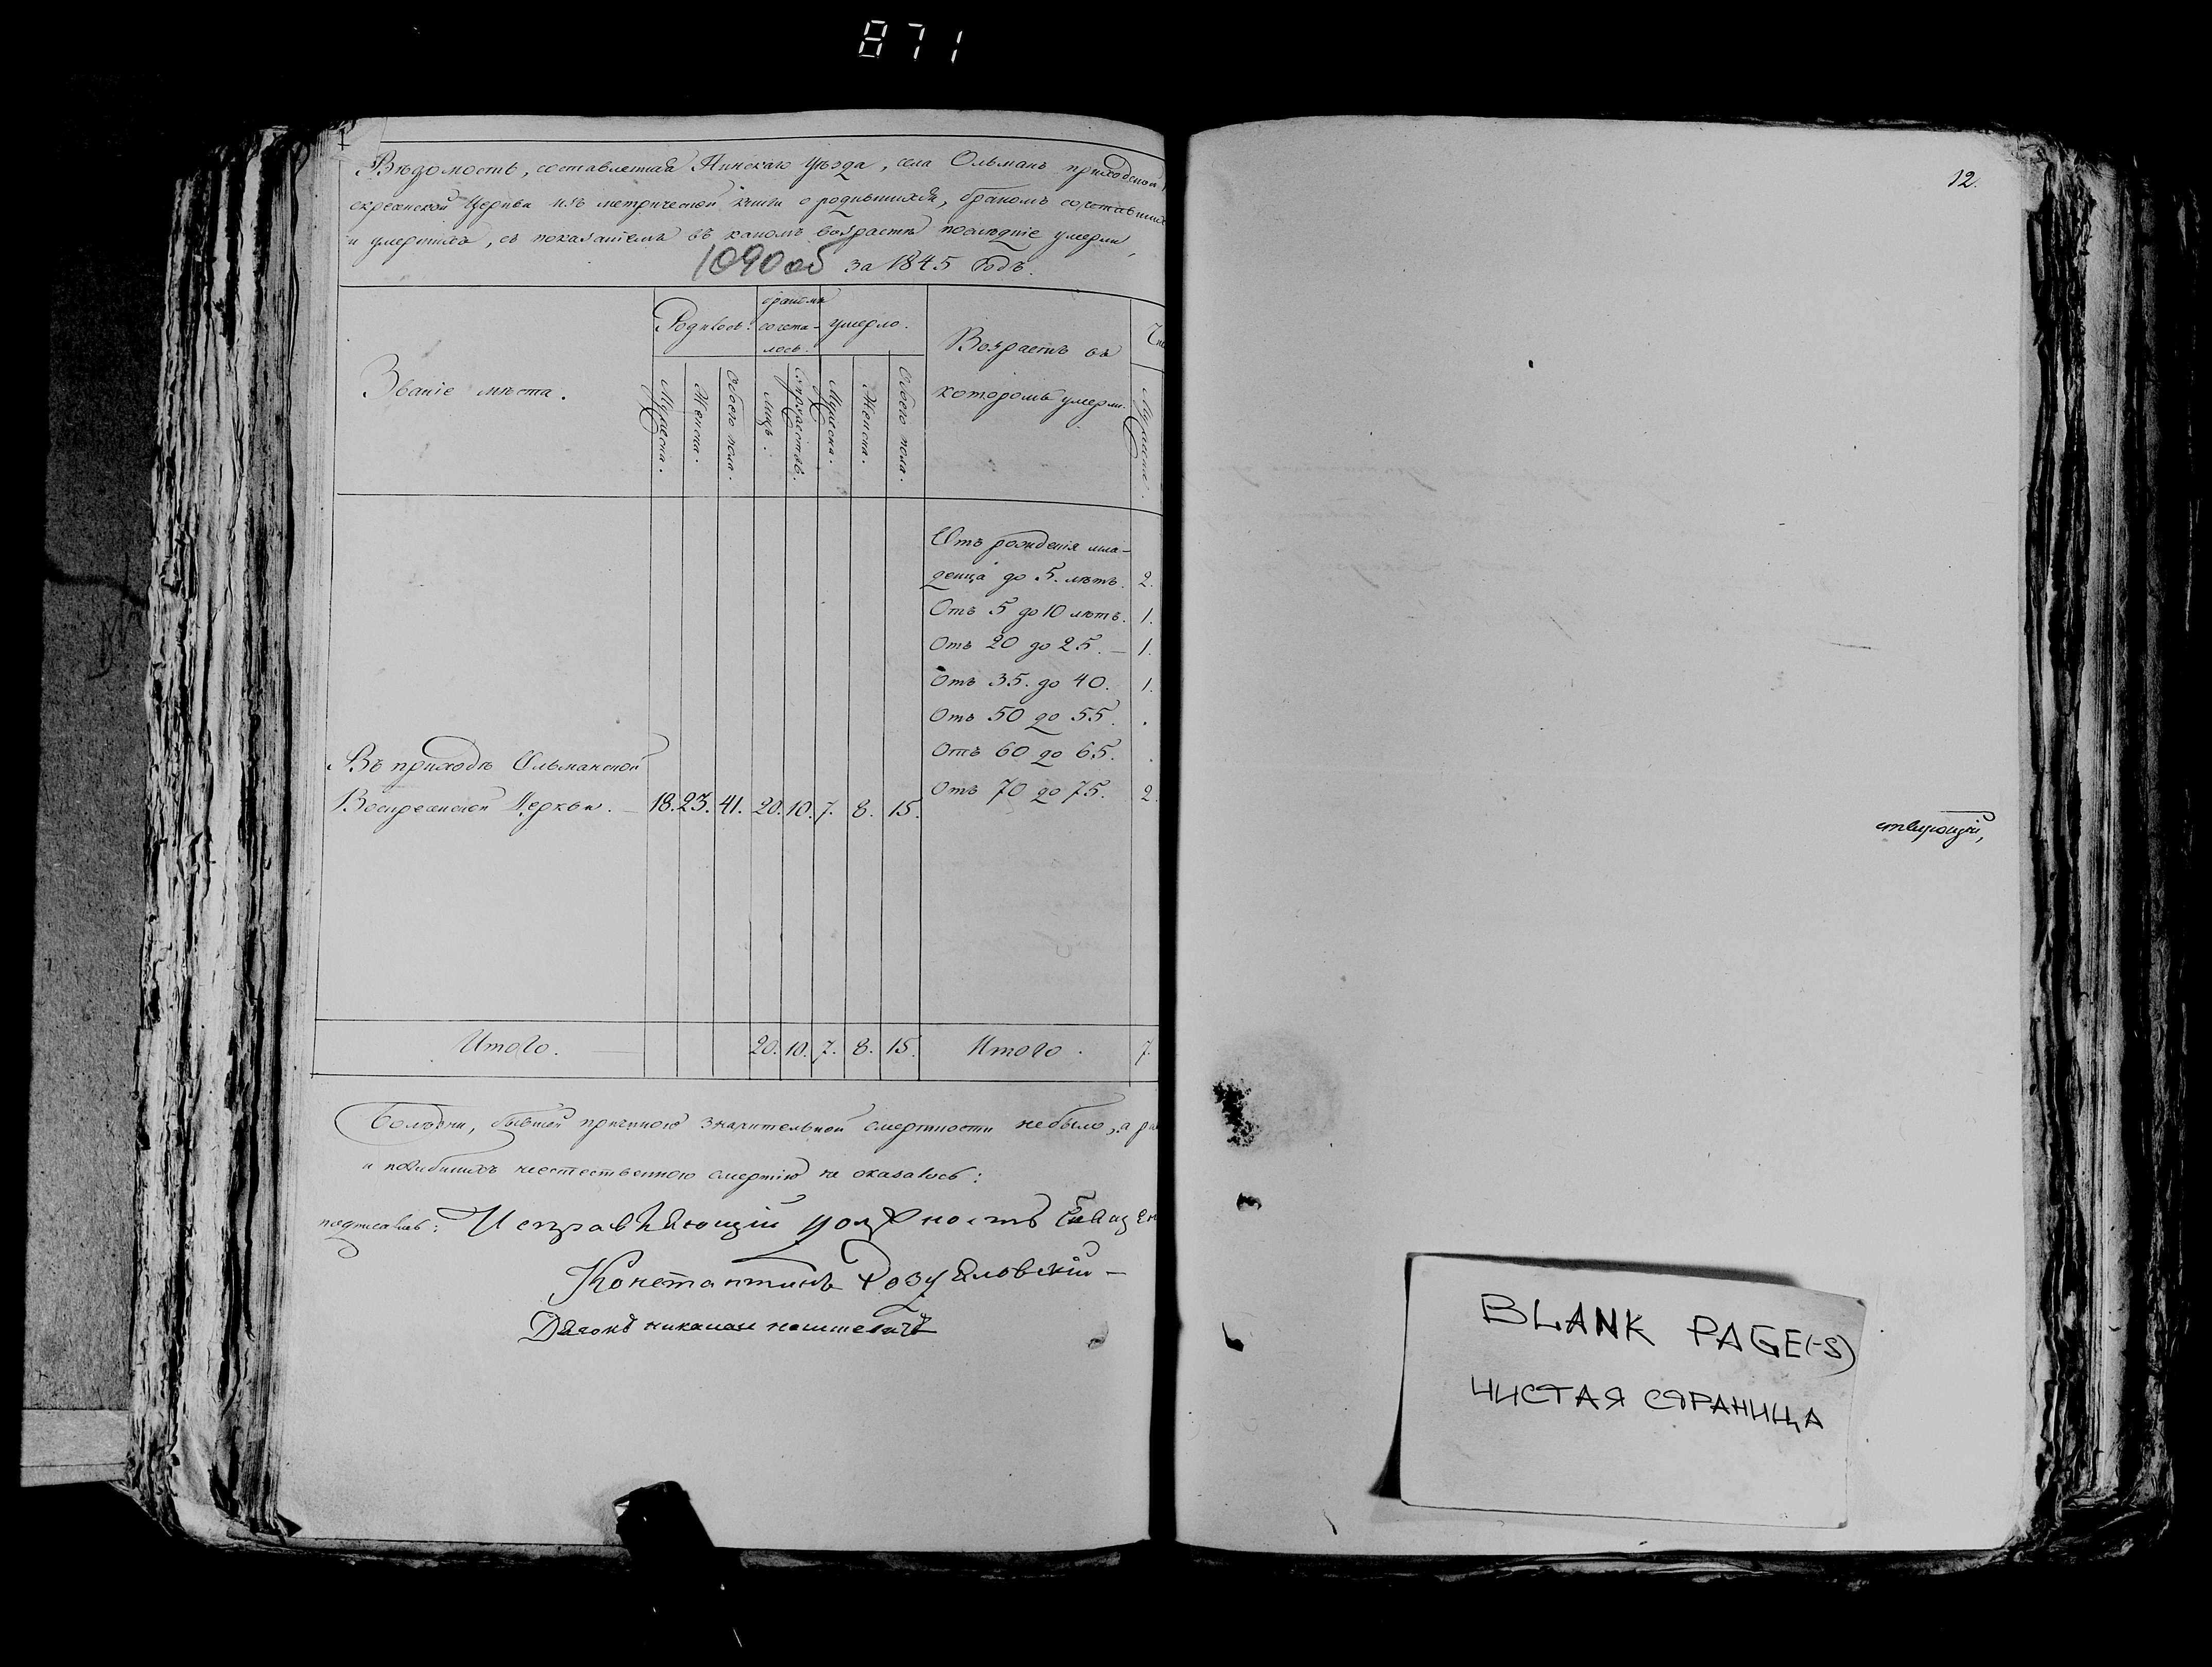 871
Вѣдомость, составленная Пинскаго уѣзда, села Ольманъ приходской
скресенской Церкви изъ метрической книги о родившихся, бракомъ сочетавших
и умершихъ, съ показаніемъ въ какомъ возрастѣ послѣдніе умерли,
1090 об за 1845 Годъ.
Званіе мѣста.
Родилось.
бракомъ сочета-
лось.
умерло.
Возрастъ въ
которомъ умерли.
Чис
Мужеска.
Женска.
Обоего пола.
лицъ.
Супружествъ.
Мужеска.
Женска.
Обоего пола.
Мужеска.
Отъ рожденія мла-
денца до 5. лѣтъ. 2.
Отъ 5 до 10 лѣтъ. 1.
Отъ 20 до 25. — 1.
Отъ 35. до 40. 1.
Отъ 50 до 55. .
Отъ 60 до 65. .
Отъ 70 до 75. 2.
Въ приходѣ Ольманской
Воскресенской Церкви. — 18. 23. 41. 20. 10. 7. 8. 15.
Итого. — 20. 10. 7. 8. 15. Итого. 7.
Болѣзни, бывшей причиною значительной смертности небыло, а
и погибшихъ неестественною смертію не оказалось:
подписалъ: Исправляющій должность Священ
Константинъ —
Дяконъ
12.
ствующій,
BLANK PAGE(-S)
ЧИСТАЯ СТРАНИЦА